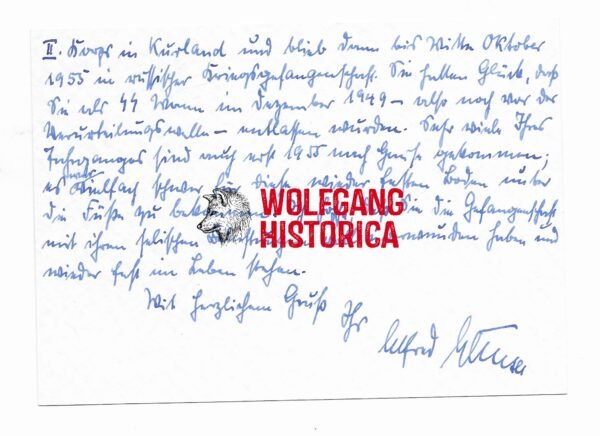 II. Korps in Kurland und blieb dann bis Mitte Oktober
1955 in russischer Kriegsgefangenschaft. Sie hatten Glück, daß
Sie als SS Mann im Dezember 1949 – also noch vor der
Verurteilungswelle – entlassen wurden. Sehr viele Ihres
Jahrganges sind auch erst 1955 nach Hause gekommen;
es war vielfach schwer für diese wieder festen Boden unter
die Füße zu Sie die Gefangenschaft
mit ihren selischen überwunden haben und
wieder fest im Leben stehen.
Mit herzlichem Gruß
Ihr
Alfred
WOLFGANG
HISTORICA